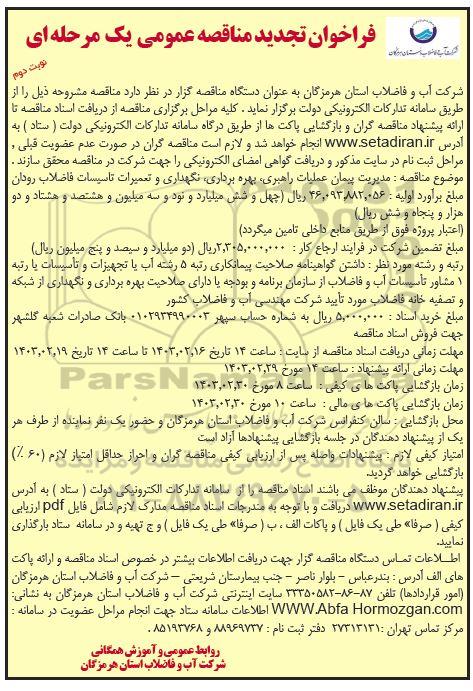 فراخوان تجدید مناقصه عمومی یک مرحله ای
شرکت آب و فاضلاب استان هرمزگان
نوبت دوم
شرکت آب و فاضلاب استان هرمزگان به عنوان دستگاه مناقصه گزار در نظر دارد مناقصه مشروحه ذیل را از
طریق سامانه تدارکات الکترونیکی دولت برگزار نماید . کلیه مراحل برگزاری مناقصه از دریافت اسناد مناقصه تا
ارائه پیشنهاد مناقصه گران و بازگشایی پاکت ها از طریق درگاه سامانه تدارکات الکترونیکی دولت ( ستاد ) به
آدرس www.setadiran.ir انجام خواهد شد و لازم است مناقصه گران در صورت عدم عضویت قبلی ,
مراحل ثبت نام در سایت مذکور و دریافت گواهی امضای الکترونیکی را جهت شرکت در مناقصه محقق سازند .
موضوع مناقصه : مدیریت پیمان عملیات راهبری، بهره برداری، نگهداری و تعمیرات تاسیسات فاضلاب رودان
مبلغ برآورد اولیه : ۴۶,۰۹۳,۸۸۲,۰۵۶ ریال (چهل و شش میلیارد و نود و سه میلیون و هشتصد و هشتاد و دو
هزار و پنجاه و شش ریال)
(اعتبار پروژه فوق از طریق منابع داخلی تامین میگردد)
مبلغ تضمین شرکت در فرایند ارجاع کار : ۲,۳۰۵,۰۰۰,۰۰۰ریال (دو میلیارد و سیصد و پنج میلیون ریال)
رتبه و رشته مورد نظر : داشتن گواهینامه صلاحیت پیمانکاری رتبه ۵ رشته آب یا تجهیزات و تأسیسات یا رتبه
۱ مشاور تأسیسات آب و فاضلاب از سازمان برنامه و بودجه یا دارای صلاحیت بهره برداری و نگهداری از شبکه
و تصفیه خانه فاضلاب مورد تأیید شرکت مهندسی آب و فاضلاب کشور
مبلغ خرید اسناد : ۵,۰۰۰,۰۰۰ ریال به شماره حساب سپهر ۰۱۰۲۹۳۴۹۹۰۰۰۳ بانک صادرات شعبه گلشهر
جهت فروش اسناد مناقصه
مهلت زمانی دریافت اسناد مناقصه از سایت : ساعت ۱۴ تاریخ ۱۴۰۳,۰۲,۱۶ تا ساعت ۱۴ تاریخ ۱۴۰۳,۰۲,۱۹
مهلت زمانی ارائه پیشنهاد : ساعت ۱۴ مورخ ۱۴۰۳,۰۲,۲۹
زمان بازگشایی پاکت ها ی کیفی : ساعت ۸ مورخ ۱۴۰۳,۰۲,۳۰
زمان بازگشایی پاکت ها ی مالی : ساعت ۱۰ مورخ ۱۴۰۳,۰۲,۳۰
محل بازگشایی : سالن کنفرانس شرکت آب و فاضلاب استان هرمزگان و حضور یک نفر نماینده از طرف هر
یک از پیشنهاد دهندگان در جلسه بازگشایی پیشنهادها آزاد است
امتیاز کیفی لازم : پیشنهادات واصله پس از ارزیابی کیفی مناقصه گران و احراز حداقل امتیاز لازم (۶۰ ٪)
بازگشایی خواهد گردید.
پیشنهاد دهندگان موظف می باشند اسناد مناقصه را از سامانه تدارکات الکترونیکی دولت ( ستاد ) به آدرس
www.setadiran.ir دریافت و با توجه به مندرجات اسناد مناقصه مدارک لازم شامل فایل pdf ارزیابی
کیفی ( صرفا» طی یک فایل ) و پاکات الف ، ب ( صرفا» طی یک فایل ) و ج تهیه و در سامانه ستاد بارگذاری
نمایید.
اطلاعات تماس دستگاه مناقصه گزار جهت دریافت اطلاعات بیشتر در خصوص اسناد مناقصه و ارائه پاکت
های الف آدرس : بندرعباس – بلوار ناصر - جنب بیمارستان شریعتی – شرکت آب و فاضلاب استان هرمزگان
(امور قراردادها) تلفن ۸۷-۸۶-۳۳۳۵۰۵۸۲ سایت اینترنتی شرکت آب و فاضلاب استان هرمزگان به نشانی:
WWW.Abfa Hormozgan.com اطلاعات سامانه ستاد جهت انجام مراحل عضویت در سامانه :
مرکز تماس تهران :۲۷۳۱۳۱۳۱ دفتر ثبت نام : ۸۸۹۶۹۷۳۷ و ۸۵۱۹۳۷۶۸ .
روابط عمومی و آموزش همگانی
شرکت آب و فاضلاب استان هرمزگان